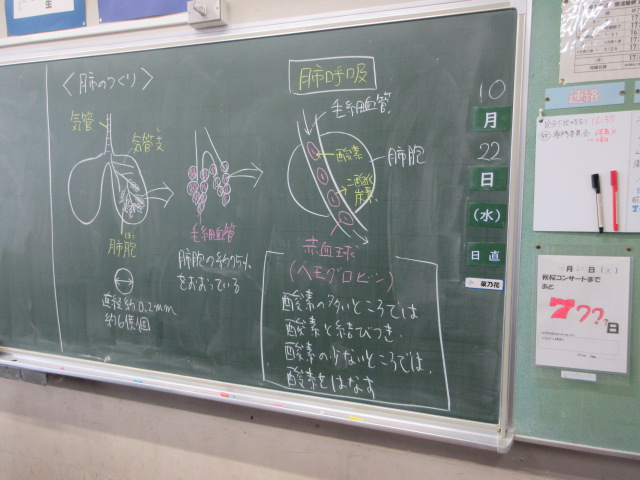 〈肺のつくり〉
気管
気管支
肺胞
直径約0.2mm
約6億個
毛細血管
肺胞の約75%
をおおっている
肺呼吸
毛細血管
酸素
二酸化
炭素
肺胞
赤血球
(ヘモグロビン)
酸素の多いところでは
酸素と結びつき、
酸素の少ないところでは、
酸素をはなす
10
月
22
日
(水)
日直
菜乃花
生
連絡
専門委員会
秋桜コンサートまで
あと
日